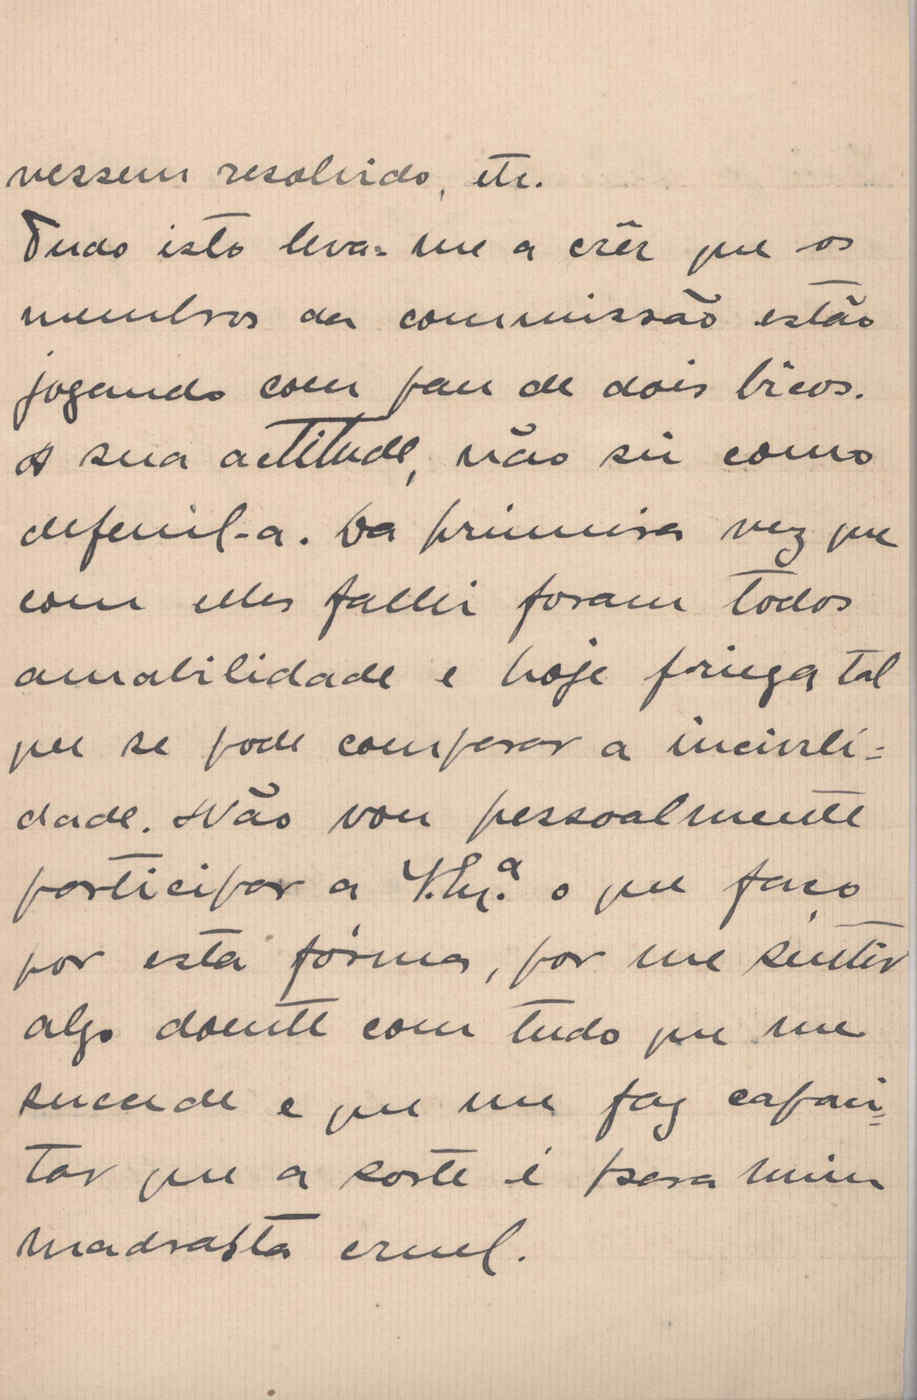 vessem resolvido, etc.
Tudo isto leva-me a crêr que os
membros da commissão estão
jogando com pau de dois bicos.
A sua actitude, não sei como
defenil-a. Da primeira vez que
com elles fallei foram todos
amabilidade e hoje frieza tal
que se pode comparar a incivili=
dade. Não vou pessoalmente
participar a V. Ex.ª o que faço
por esta fórma, por me sentir
algo doente com tudo que me
succede e que me faz
tar que a sorte é para mim
madrasta cruel.